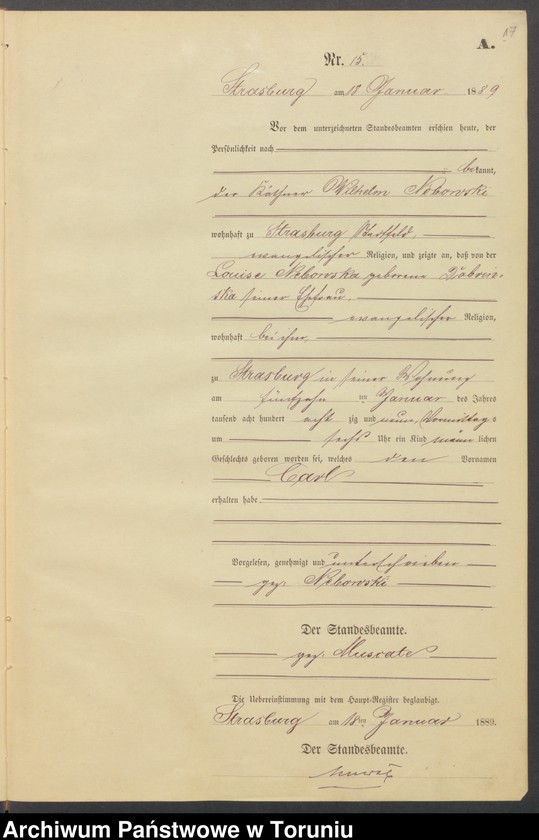 17
A.
Nr. 15.
Strasburg am 18 Januar 1889
Vor dem unterzeichneten Standesbeamten erschien heute, der
Persönlichkeit nach
bekannt,
der Käthner Wilhelm Nebowski
wohnhaft zu Strasburg Stadtfeld,
evangelischer Religion, und zeigte an, daß von der
Louise Nebowska geborene Dobrin-
ska seiner Ehefrau,
evangelischer Religion,
wohnhaft bei ihm,
zu Strasburg in seiner Wohnung
am fünfzehn ten Januar des Jahres
tausend acht hundert acht zig und neun, Vormittags
um sechs Uhr ein Kind männlichen
Geschlechts geboren worden sei, welches den Vornamen
Carl
erhalten habe.
Vorgelesen, genehmigt und unterschrieben
gez. Nebowski
Der Standesbeamte.
gez. Muscate
Die Uebereinstimmung mit dem Haupt-Register beglaubigt.
Strasburg am 18ten Januar 1889.
Der Standesbeamte.
Archiwum Państwowe w Toruniu